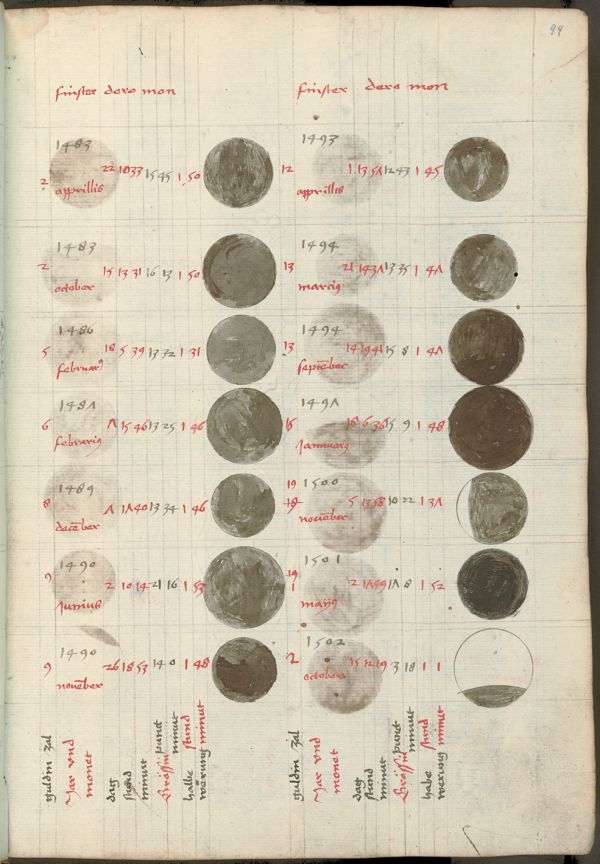 99
finster dero mon
1483
2 22 18 33 15 45 1 50
apprillis
1483
2 15 13 31 16 13 1 50
october
1486
5 18 5 39 13 72 1 31
februar9
148Λ
6 Λ 15 46 13 25 1 46
februari9
1489
8 Λ 1Λ 40 13 34 1 46
decēber
1490
9 2 10 14 21 16 1 53
Junius
1490
9 26 18 53 14 0 1 48
novēber
guldin zal
Jar vnd
monet
dag
stund
minut
Grössin punct
minut
halbe stund
werung minut
finster dero mon
1493
12 1 13 5Λ 12 43 1 45
apprillis
1494
13 21 14 3Λ 13 35 1 4Λ
marci9
1494
13 14 19 41 15 8 1 4Λ
septēber
149Λ
16 18 6 36 15 9 1 48
Jannuari9
1500
19 5 13 58 10 22 1 3Λ
novēber
1501
19 2 1Λ 49 1Λ 8 1 52
1502
2 15 12 19 3 18 1 1
october
guldin zal
Jar vnd
monet
dag
stund
minut
Grössin punct
minut
habe stund
werung minut